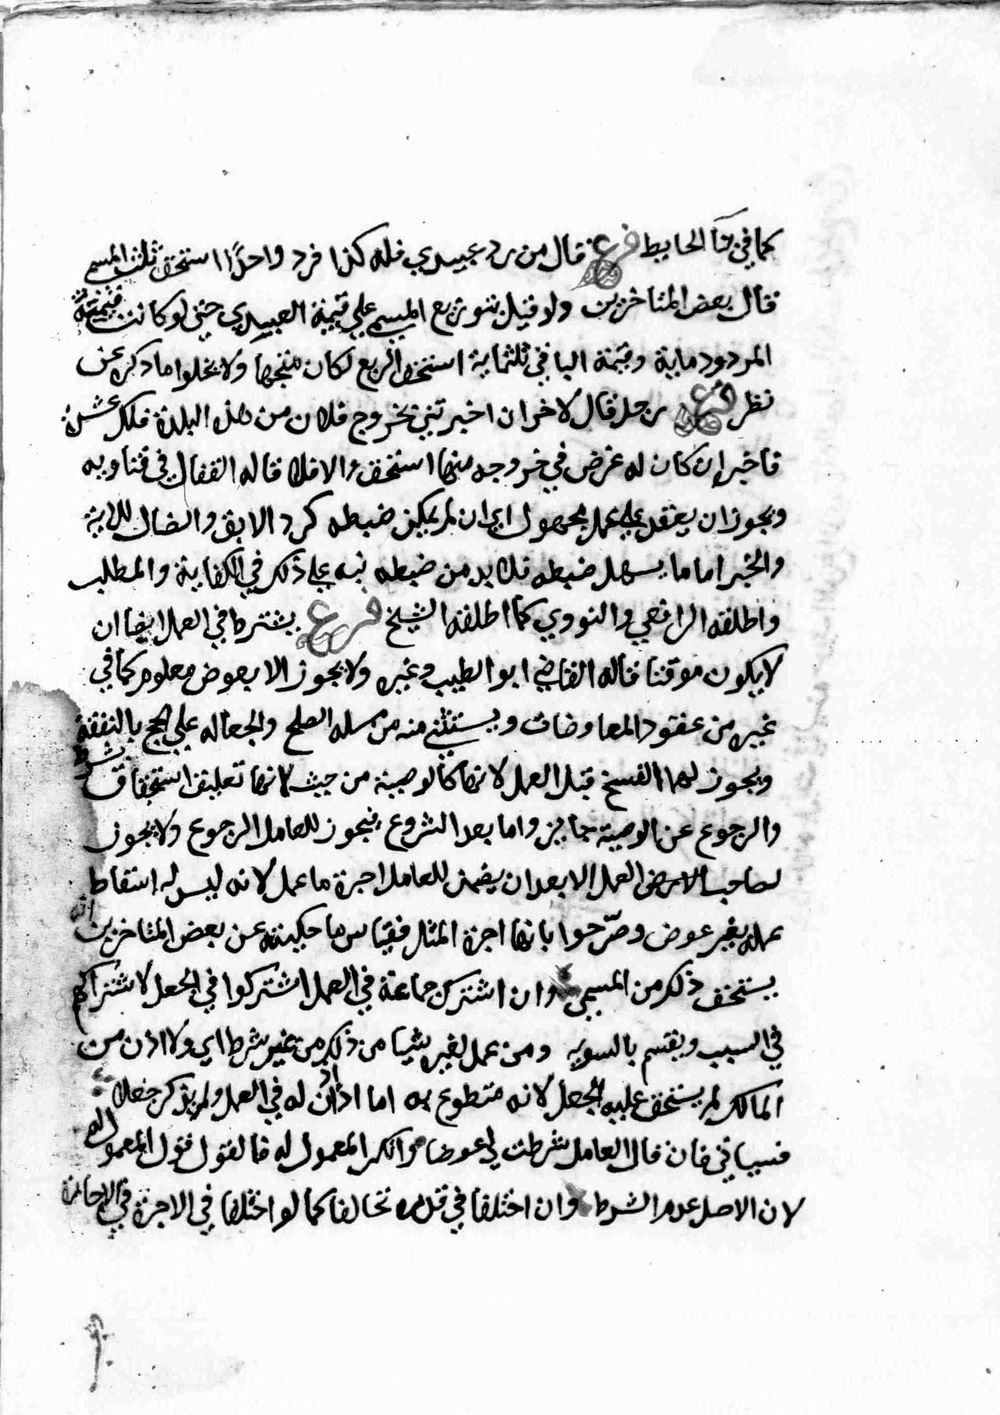 كما في بنا الحايط فرع قال من رد عبيدي فله كذا فرد واحدًا استحق ثلث المسمى
قال بعض المتاخرين ولو قيل بتوزيع المسمى على قيمة العبيدي حتى لو كانت قيمته
المردود ماية وقيمة الباقي ثلثماية استحق الربع لكان متجها ولا يخلوا ما ذكره عن
نظر فرع رجل قال لاخر ان اخبرتني بخروج فلان من هذه البلدة فلك عشرة
فاخبر ان كان له غرض في خروجه منها استحق والا فلا قاله القفال في فتاويه
ويجوز ان يعقد على عمل مجهول اي ان لم يمكن ضبطه كرد الابق والضال للاية
والخبر اما ما يسهل ضبطه فلا بد من ضبطه نبه على ذلك في الكفاية والمطلب
واطلقه الرافعي والنووي كما اطلقه الشيخ فرع يشترط في العمل ايضا ان
لا يكون موقتا قاله القاضي ابو الطيب وغيره ولا يجوز الا بعوض معلوم كما في
غيره من عقود المعاوضات ويستثنى منه مسله العلج والجعاله على الحج بالنفقة
ويجوز لهما الفسخ قبل العمل لانها كالوصية من حيث انها تعليق استحقاق بشرط
والرجوع عن الوصية جايز واما بعد الشروع فيجوز للعامل الرجوع ولا يجوز
لصاحب العمل الا بعد ان يضمن للعامل اجرة ما عمل لانه ليس له اسقاط
عمله بغير عوض وصرّحوا بانها اجرة المثل فقياس ما حكيته عن بعض المتاخرين انه
يستحق ذلك من المسمى وان اشترك جماعة في العمل اشتركوا في الجعل لاشتراكهم
في السبب ويقسم بالسويه ومن عمل لغيره شيا من ذلك من غير شرط اي ولا اذن من
المالك لم يستحق عليه الجعل لانه متطوع به اما اذا اذن له في العمل ولم يذكر جعلا
فسياتي فان قال العامل شرطت لي عوضا وانكر المعمول له فالقول قول المعمول له
لان الاصل عدم الشرط وان اختلفا في قدره تحالفا كما لو اختلفا في الاجرة في الاجارة